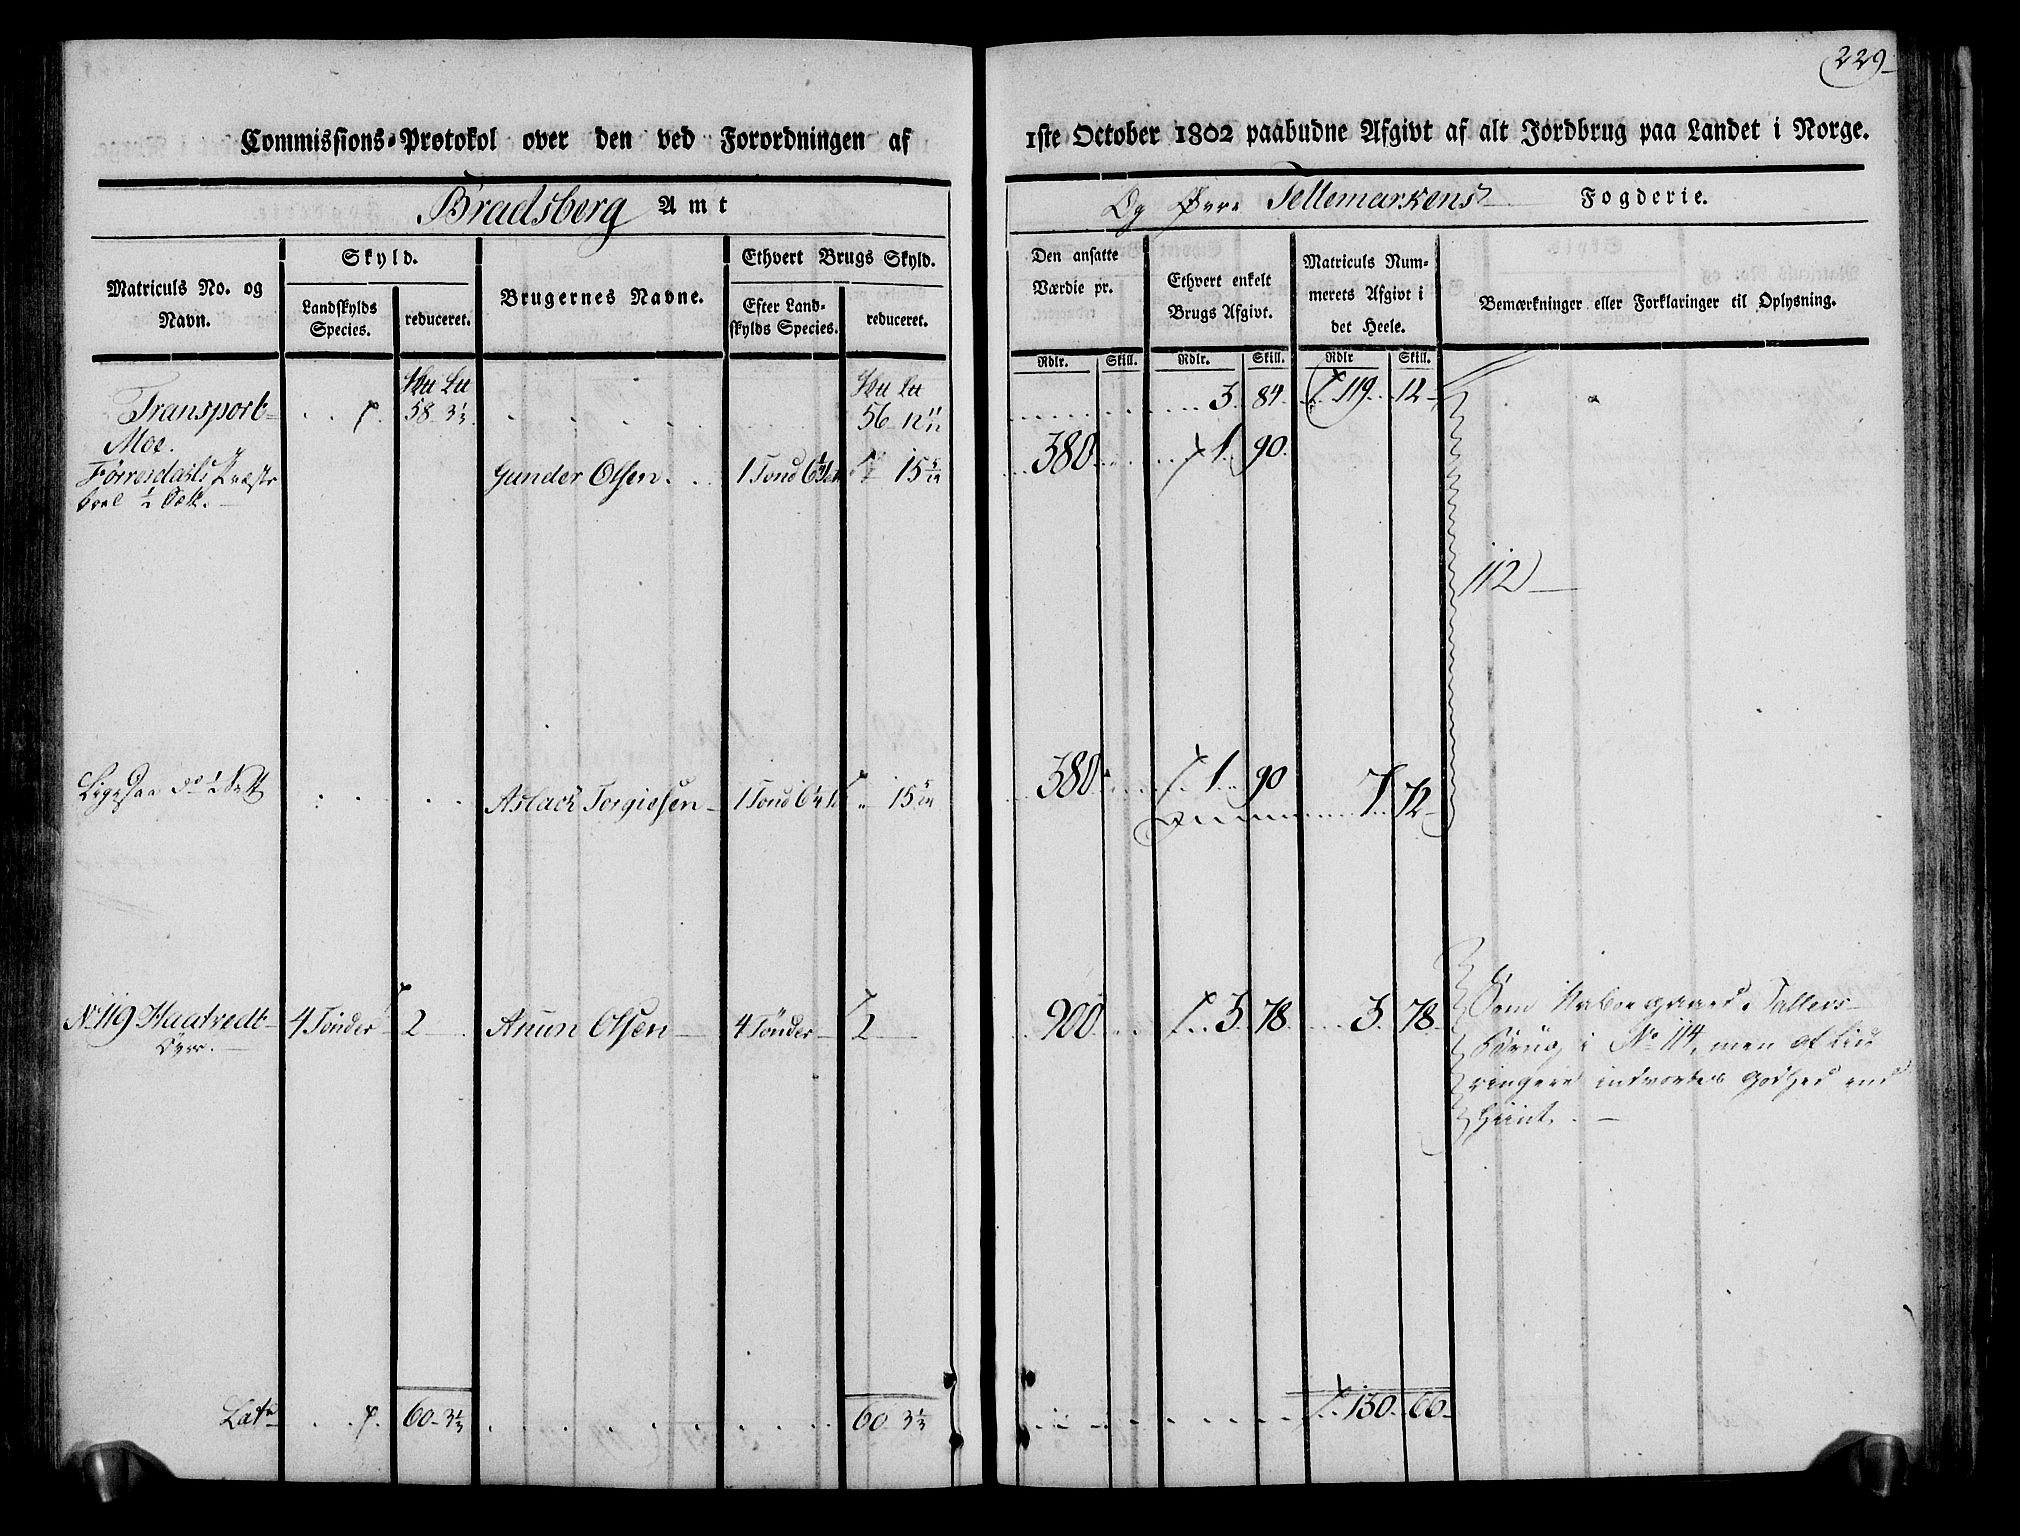 229
Commissions-Protokol over den ved Forordningen af
1ste October 1802 paabudne Afgivt af alt Jordbrug paa Landet i Norge.
Bradsberg Amt
Og Øvre Tellemarkens Fogderie.
Matriculs No. og Navn.
Skyld.
Landskylds Species.
reduceret.
Brugernes Navne.
Ethvert Brugs Skyld.
Efter Landskylds Species.
reduceret.
Den ansatte Værdie pr.
Ethvert enkelt Brugs Afgivt.
Matriculs Nummerets Afgivt i det Heele.
Bemærkninger eller Forklaringer til Oplysning.
Rdlr. Skill. Rdlr. Skill. Rdlr Skill.
Transport 58 3½ 56 12 3 84 119 12
Moe.
Præste
boel ½ Gunder Olsen. 1 Tønd 6 15 380 1 90
112
Ligesaa do ½ Aslack Torgiersen 1 Tønd 6 15 380 1 90
7 72
No 119 Haatvedt 4 Tønder 2 Anun Olsen 4 Tønder 2 900 3 78 3 78
Som Naboegaard
Brug i No 114, men af
ringere indvortes Godhed end
Hiint.
Lat 60 3⅓ 60 3⅓ 130 66